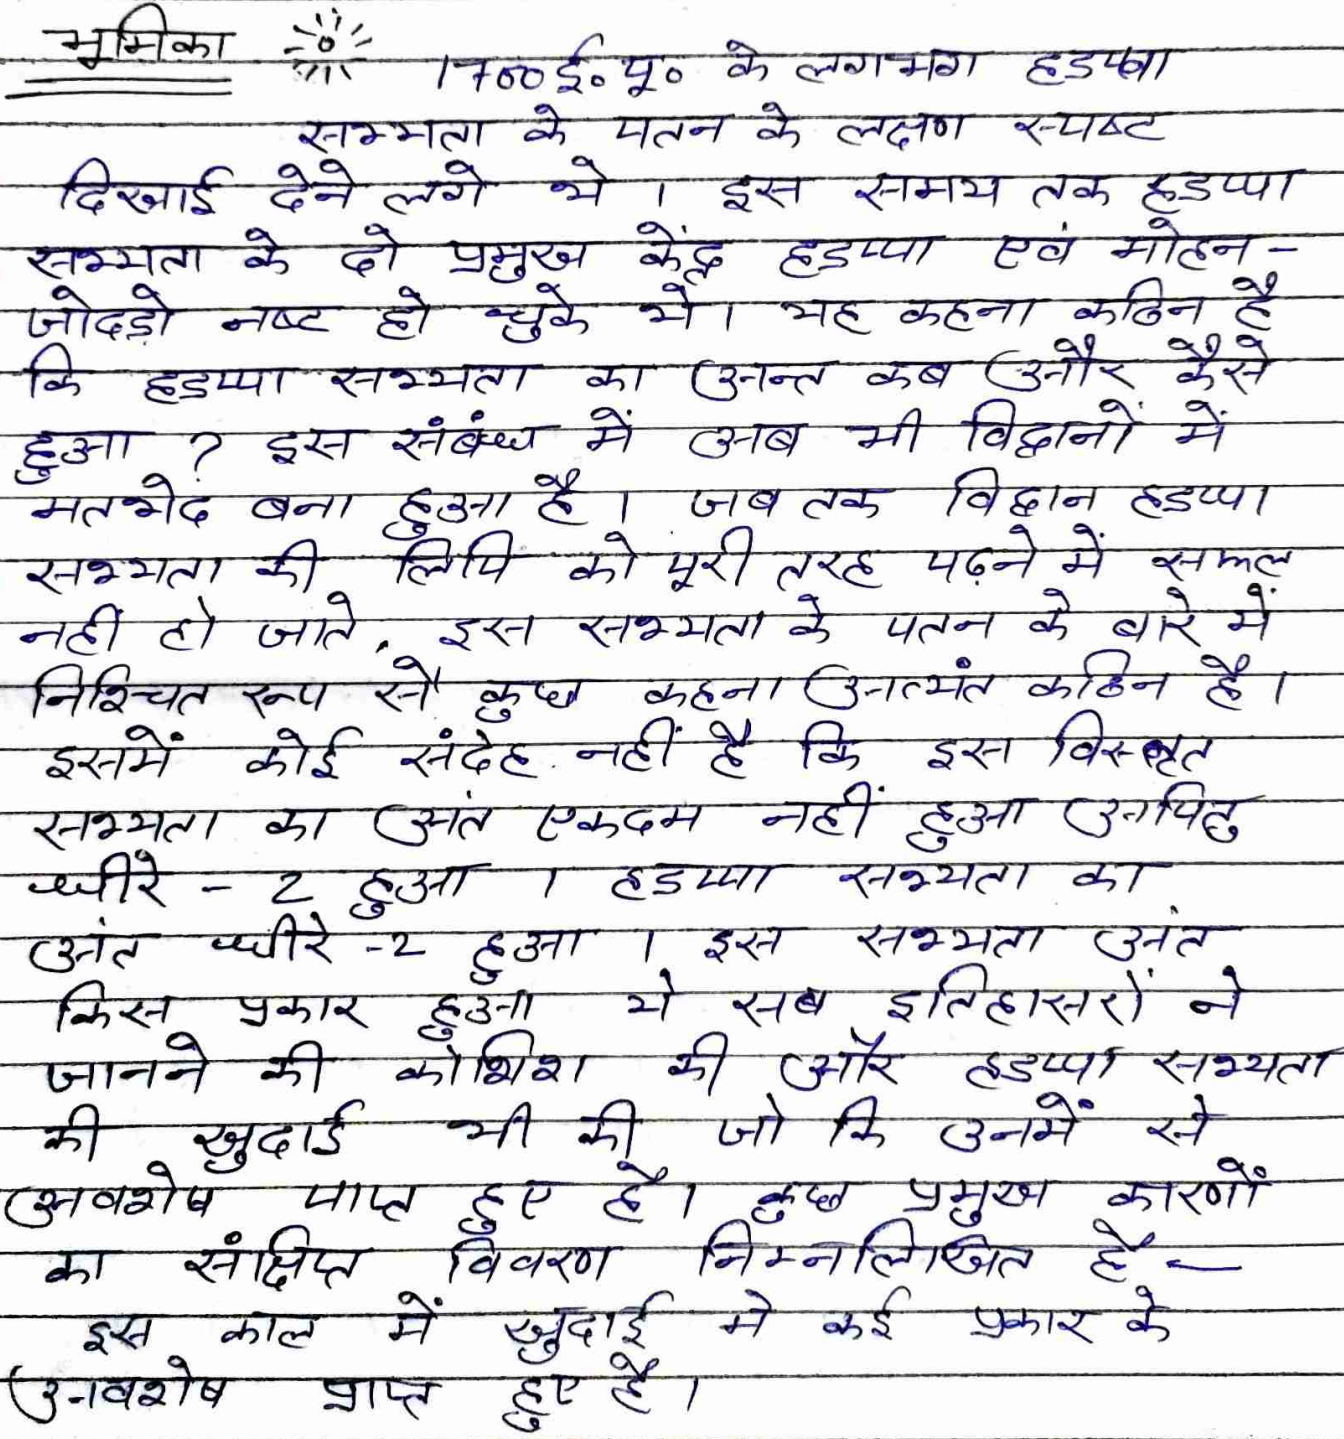 भूमिका
1700 ई० पू० के लगभग हडप्पा
सभ्यता के पतन के लक्षण स्पष्ट
दिखाई देने लगे थे । इस समय तक हडप्पा
सभ्यता के दो प्रमुख केंद्र हडप्पा एवं मोहन-
जोदड़ो नष्ट हो चुके थे। यह कहना कठिन है
कि हडप्पा सभ्यता का अन्त कब और कैसे
हुआ ? इस संबंध में अब भी विद्वानों में
मतभेद बना हुआ है। जब तक विद्वान हडप्पा
सभ्यता की लिपि को पूरी तरह पढ़ने में सफल
नहीं हो जाते, इस सभ्यता के पतन के बारे में
निश्चित रूप से कुछ कहना अत्यंत कठिन है।
इसमें कोई संदेह नहीं है कि इस विस्तृत
सभ्यता का अंत एकदम नहीं हुआ अपितु
धीरे - 2 हुआ । हडप्पा सभ्यता का
अंत धीरे -2 हुआ । इस सभ्यता अंत
किस प्रकार हुआ ये सब इतिहासरों ने
जानने की कोशिश की और हडप्पा सभ्यता
की खुदाई भी की जो कि उनमें से
अवशेष पाप्त हुए है। कुछ प्रमुख कारणों
का संक्षिप्त विवरण निम्नलिखित है -
इस काल में खुदाई मे कई प्रकार के
अवशेष प्राप्त हुए है।